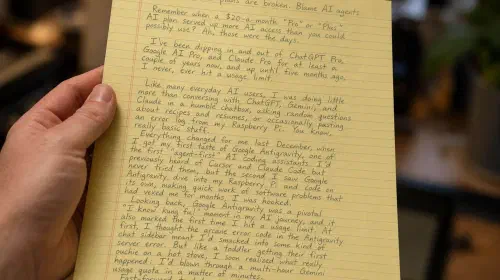 plans are broken. Blame AI agents
Remember when a $20-a-month "Pro" or "Plus"
AI plan served up more AI access than you could
possibly use? Ah, those were the days.
I've been dipping in and out of ChatGPT Pro,
Google AI Pro, and Claude Pro for at least a
couple of years now, and up until five months ago,
I never, ever hit a usage limit.
Like many everyday AI users, I was doing little
more than conversing with ChatGPT, Gemini, and
Claude in a humble chatbox, asking random questions
about recipes and resumes, or occasionally pasting
an error log from my Raspberry Pi. You know,
really basic stuff.
Everything changed for me last December, when
I got my first taste of Google Antigravity, one of
the first "agent-first" AI coding assistants. I'd
previously heard of Cursor and Claude Code, but
never tried them, but the second I saw Google
Antigravity dive into my Raspberry Pi and code on
its own, making quick work of software problems that
had vexed me for months, I was hooked.
Looking back, Google Antigravity was a pivotal
"I know kung fu" moment in my AI journey, and it
also marked the first time I hit a usage limit. At
first, I thought the arcane error code in the Antigravity
chat sidebar meant I'd smashed into some kind of
server error. But like a toddler getting their first
ouchie on a hot stove, I soon realized what really
happened: I'd blown through a multi-hour Gemini
usage quota in a matter of minutes.